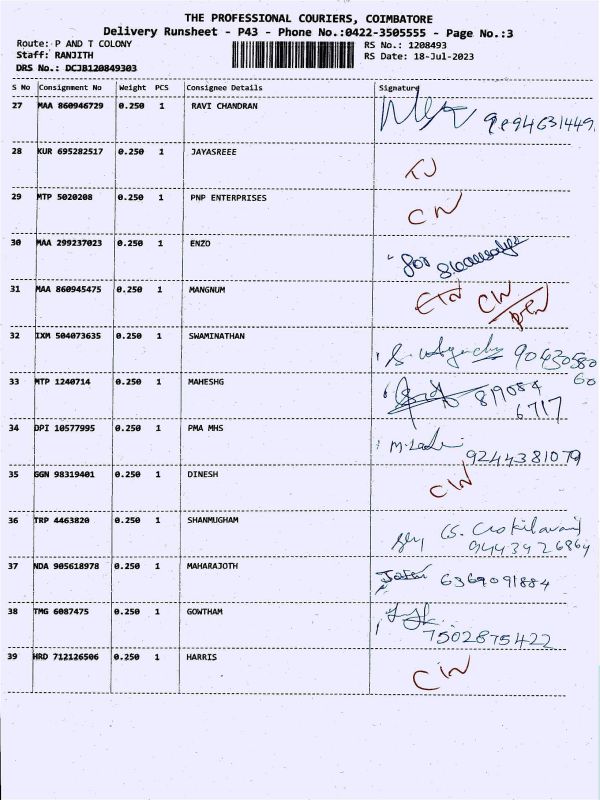 THE PROFESSIONAL COURIERS, COIMBATORE
Delivery Runsheet - P43 - Phone No.:0422-3505555 - Page No.:3
Route: P AND T COLONY RS No.: 1208493
Staff: RANJITH RS Date: 18-Jul-2023
DRS No.: DCJB120849303
S No Consignment No Weight PCS Consignee Details Signature
27 MAA 860946729 0.250 1 RAVI CHANDRAN
28 KUR 695282517 0.250 1 JAYASREEE
29 MTP 5020208 0.250 1 PNP ENTERPRISES CN
30 MAA 299237023 0.250 1 ENZO
31 MAA 860945475 0.250 1 MANGNUM
32 IXM 504073635 0.250 1 SWAMINATHAN
33 MTP 1240714 0.250 1 MAHESHG 819084
6717
34 DPI 10577995 0.250 1 PMA MHS
9244381079
35 GGN 98319401 0.250 1 DINESH
36 TRP 4463820 0.250 1 SHANMUGHAM
9443926864
37 NDA 905618978 0.250 1 MAHARAJOTH 6369091884
38 TMG 6087475 0.250 1 GOWTHAM
7502875422
39 HRD 712126506 0.250 1 HARRIS